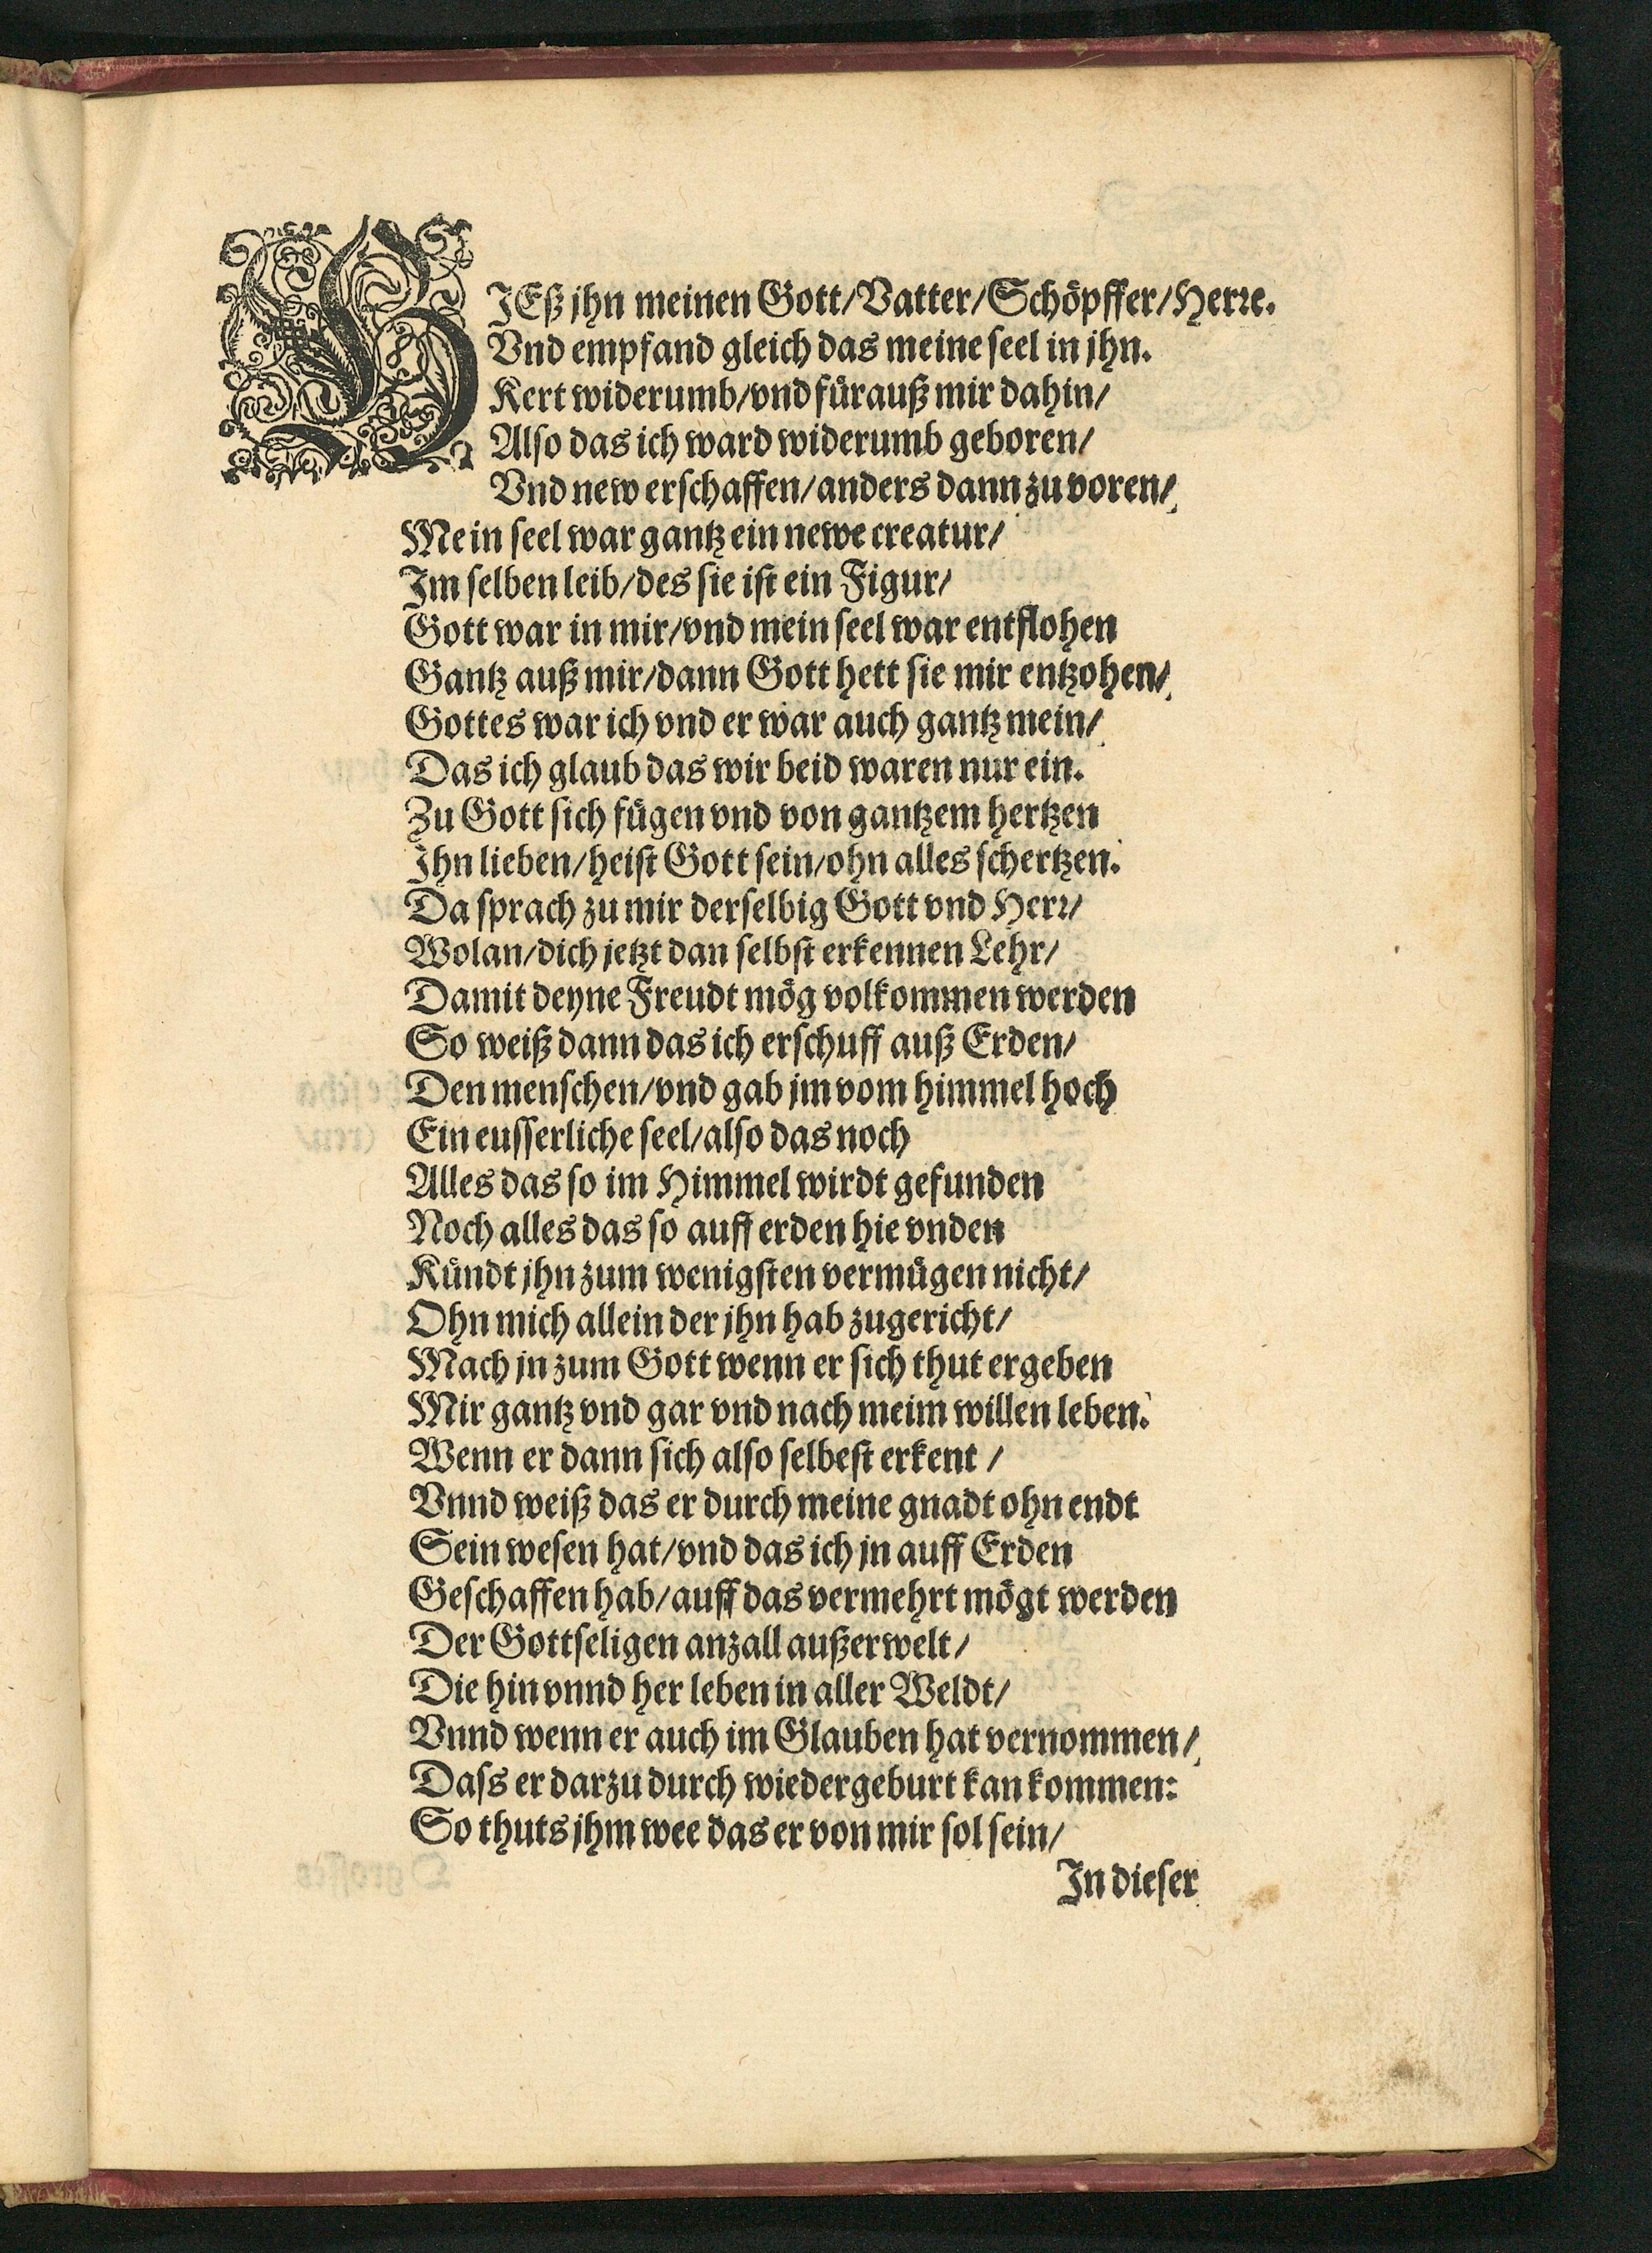 HIEß jhn meinen Gott/Vatter/Schöpffer/Herꝛe.
Vnd empfand gleich das meine seel in jhn.
Kert widerumb/vnd fürauß mir dahin/
Also das ich ward widerumb geboren/
Vnd new erschaffen/anders dann zu voren/
Mein seel war gantz ein newe creatur/
Im selben leib/des sie ist ein Figur/
Gott war in mir/vnd mein seel war entflohen
Gantz auß mir/dann Gott hett sie mir entzohen/
Gottes war ich vnd er war auch gantz mein/
Das ich glaub das wir beid waren nur ein.
Zu Gott sich fügen vnd von gantzem hertzen
Ihn lieben/heist Gott sein/ohn alles schertzen.
Da sprach zu mir derselbig Gott vnd Herꝛ/
Wolan/dich jetzt dan selbst erkennen Lehr/
Damit deyne Freudt mög volkommen werden
So weiß dann das ich erschuff auß Erden/
Den menschen/vnd gab jm vom himmel hoch
Ein eusserliche seel/also das noch
Alles das so im Himmel wirdt gefunden
Noch alles das so auff erden hie vnden
Kündt jhn zum wenigsten vermügen nicht/
Ohn mich allein der jhn hab zugericht/
Mach jn zum Gott wenn er sich thut ergeben
Mir gantz vnd gar vnd nach meim willen leben.
Wenn er dann sich also selbest erkent /
Vnnd weiß das er durch meine gnadt ohn endt
Sein wesen hat/vnd das ich jn auff Erden
Geschaffen hab/auff das vermehrt mögt werden
Der Gottseligen anzall außerwelt/
Die hin vnnd her leben in aller Weldt/
Vnnd wenn er auch im Glauben hat vernommen/
Dass er darzu durch wiedergeburt kan kommen:
So thuts jhm wee das er von mir sol sein/
In dieser